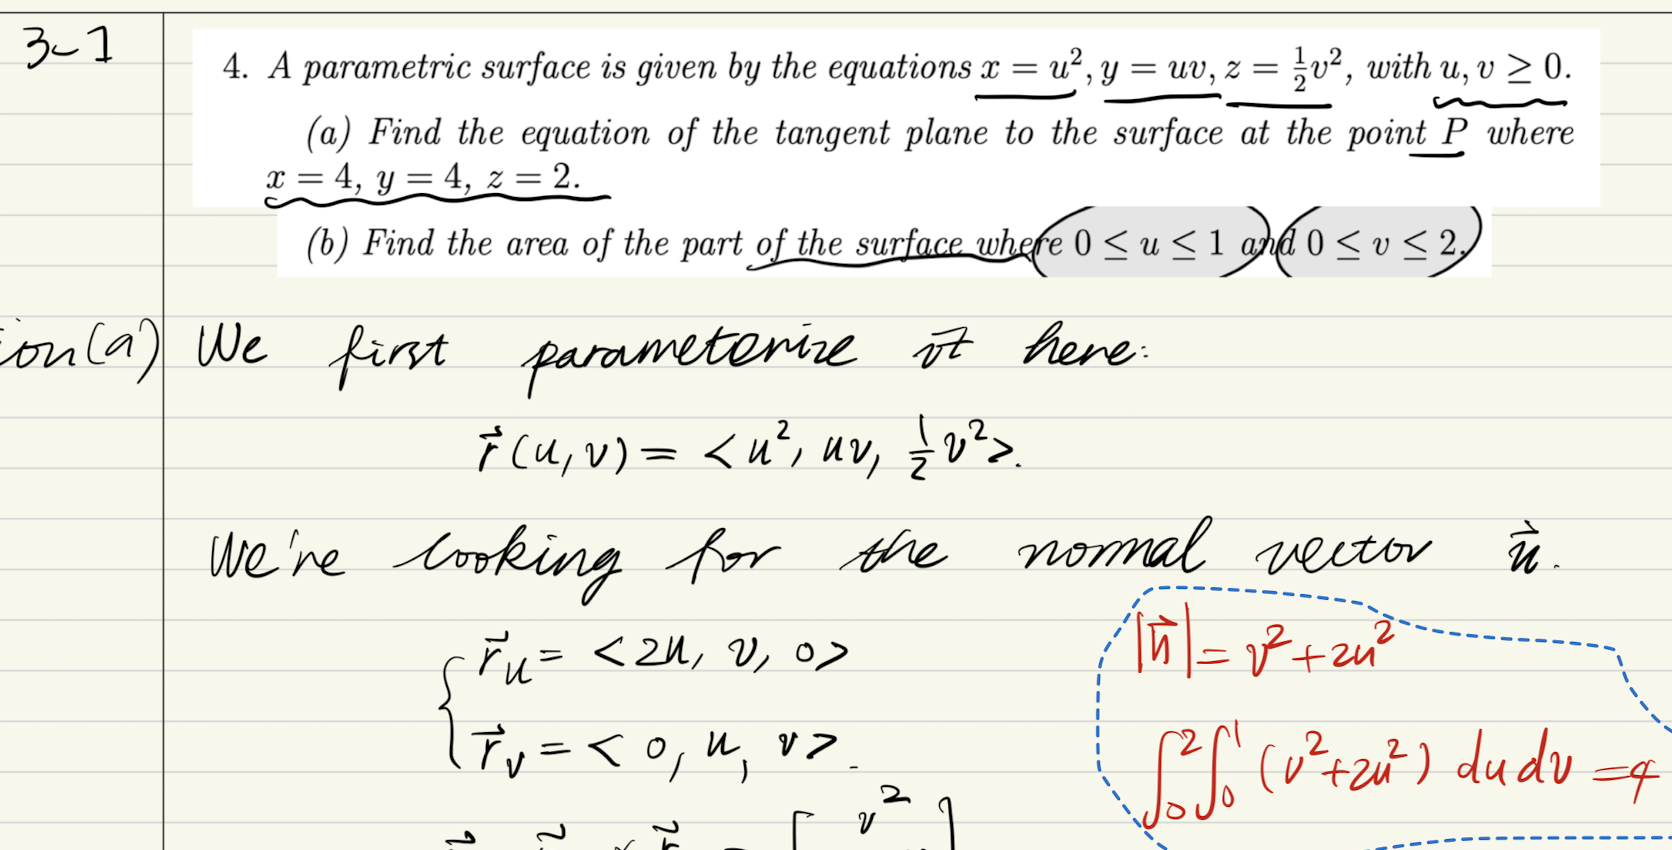 3-1
4. A parametric surface is given by the equations x = u², y = uv, z = ½v², with u, v ≥ 0.
(a) Find the equation of the tangent plane to the surface at the point P where
x = 4, y = 4, z = 2.
(b) Find the area of the part of the surface where 0 ≤ u ≤ 1 and 0 ≤ v ≤ 2.
ion(a) We first parameterize it here:
r⃗(u,v) = <u², uv, ½v²>.
We're looking for the normal vector n⃗.
r⃗u = <2u, v, 0>
|n⃗| = v²+2u²
r⃗v = <0, u, v>.
∫₀²∫₀¹ (v²+2u²) du dv = 4
v²